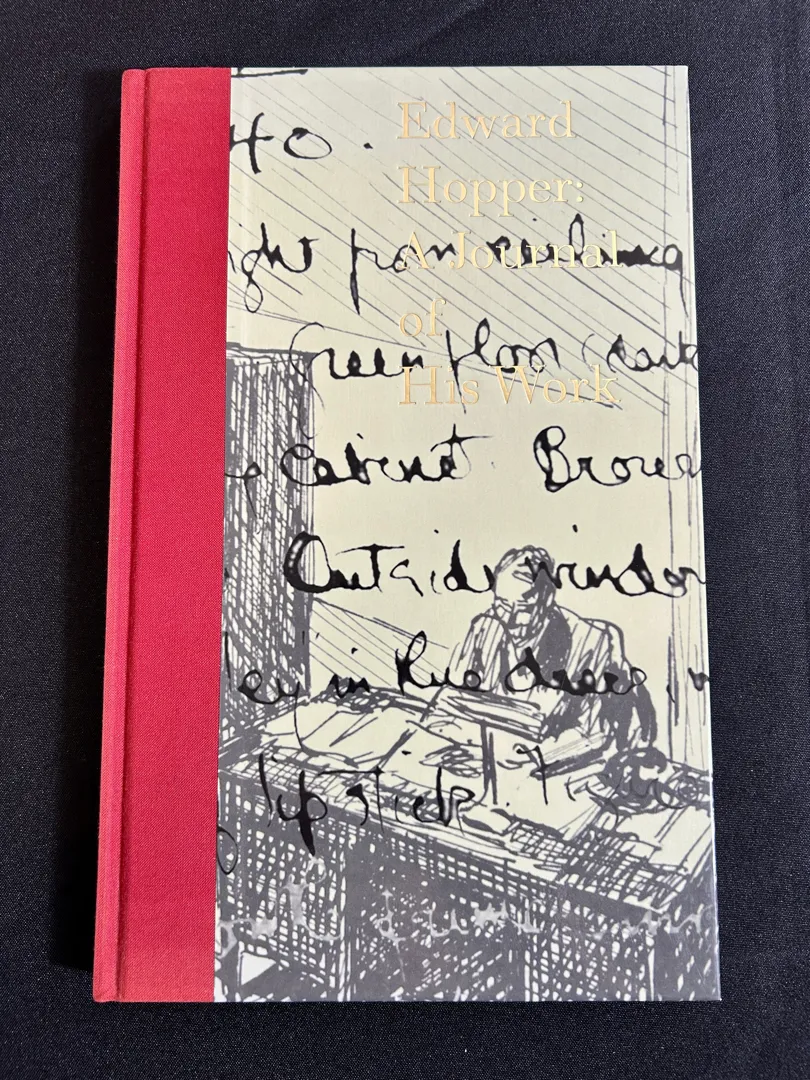 Edward
Hopper:
A Journal
of
His Work
40.
ight from ceiling
Green floor (dark
Cabinet. Brown
Outside window
ley in blue dress,
lipstick.